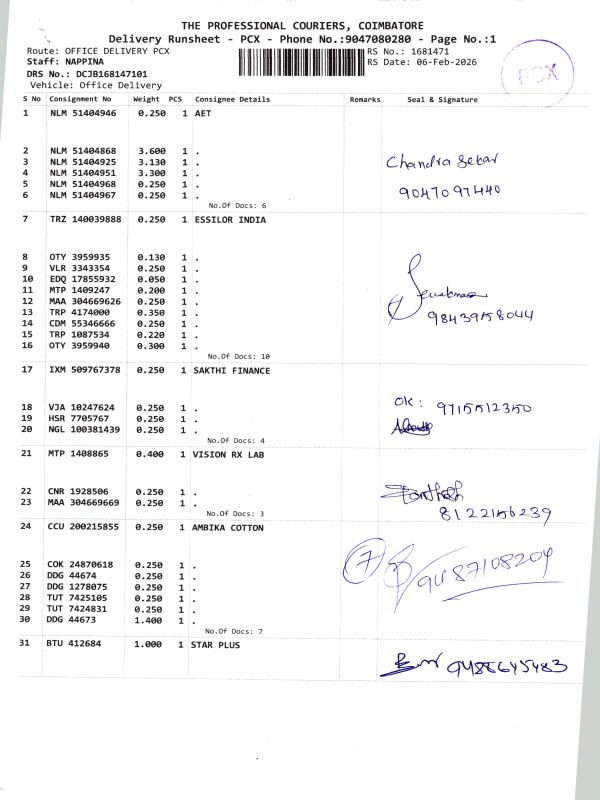 THE PROFESSIONAL COURIERS, COIMBATORE
Delivery Runsheet - PCX - Phone No.:9047080280 - Page No.:1
Route: OFFICE DELIVERY PCX RS No.: 1681471
Staff: NAPPINA RS Date: 06-Feb-2026
DRS No.: DCJB168147101
Vehicle: Office Delivery
PCX
S No Consignment No Weight PCS Consignee Details Remarks Seal & Signature
1 NLM 51404946 0.250 1 AET
2 NLM 51404868 3.600 1 .
3 NLM 51404925 3.130 1 .
4 NLM 51404951 3.300 1 .
5 NLM 51404968 0.250 1 .
6 NLM 51404967 0.250 1 .
Chandra Sekar
9047097440
No.Of Docs: 6
7 TRZ 140039888 0.250 1 ESSILOR INDIA
8 OTY 3959935 0.130 1 .
9 VLR 3343354 0.250 1 .
10 EDQ 17855932 0.050 1 .
11 MTP 1409247 0.200 1 .
12 MAA 304669626 0.250 1 .
13 TRP 4174000 0.350 1 .
14 CDM 55346666 0.250 1 .
15 TRP 1087534 0.220 1 .
16 OTY 3959940 0.300 1 .
9843958044
No.Of Docs: 10
17 IXM 509767378 0.250 1 SAKTHI FINANCE
18 VJA 10247624 0.250 1 .
19 HSR 7705767 0.250 1 .
20 NGL 100381439 0.250 1 .
OK: 9715512350
No.Of Docs: 4
21 MTP 1408865 0.400 1 VISION RX LAB
22 CNR 1928506 0.250 1 .
23 MAA 304669669 0.250 1 .
Santhosh
8122156239
No.Of Docs: 3
24 CCU 200215855 0.250 1 AMBIKA COTTON
25 COK 24870618 0.250 1 .
26 DDG 44674 0.250 1 .
27 DDG 1278075 0.250 1 .
28 TUT 7425105 0.250 1 .
29 TUT 7424831 0.250 1 .
30 DDG 44673 1.400 1 .
7 9487108209
No.Of Docs: 7
31 BTU 412684 1.000 1 STAR PLUS
9488645483